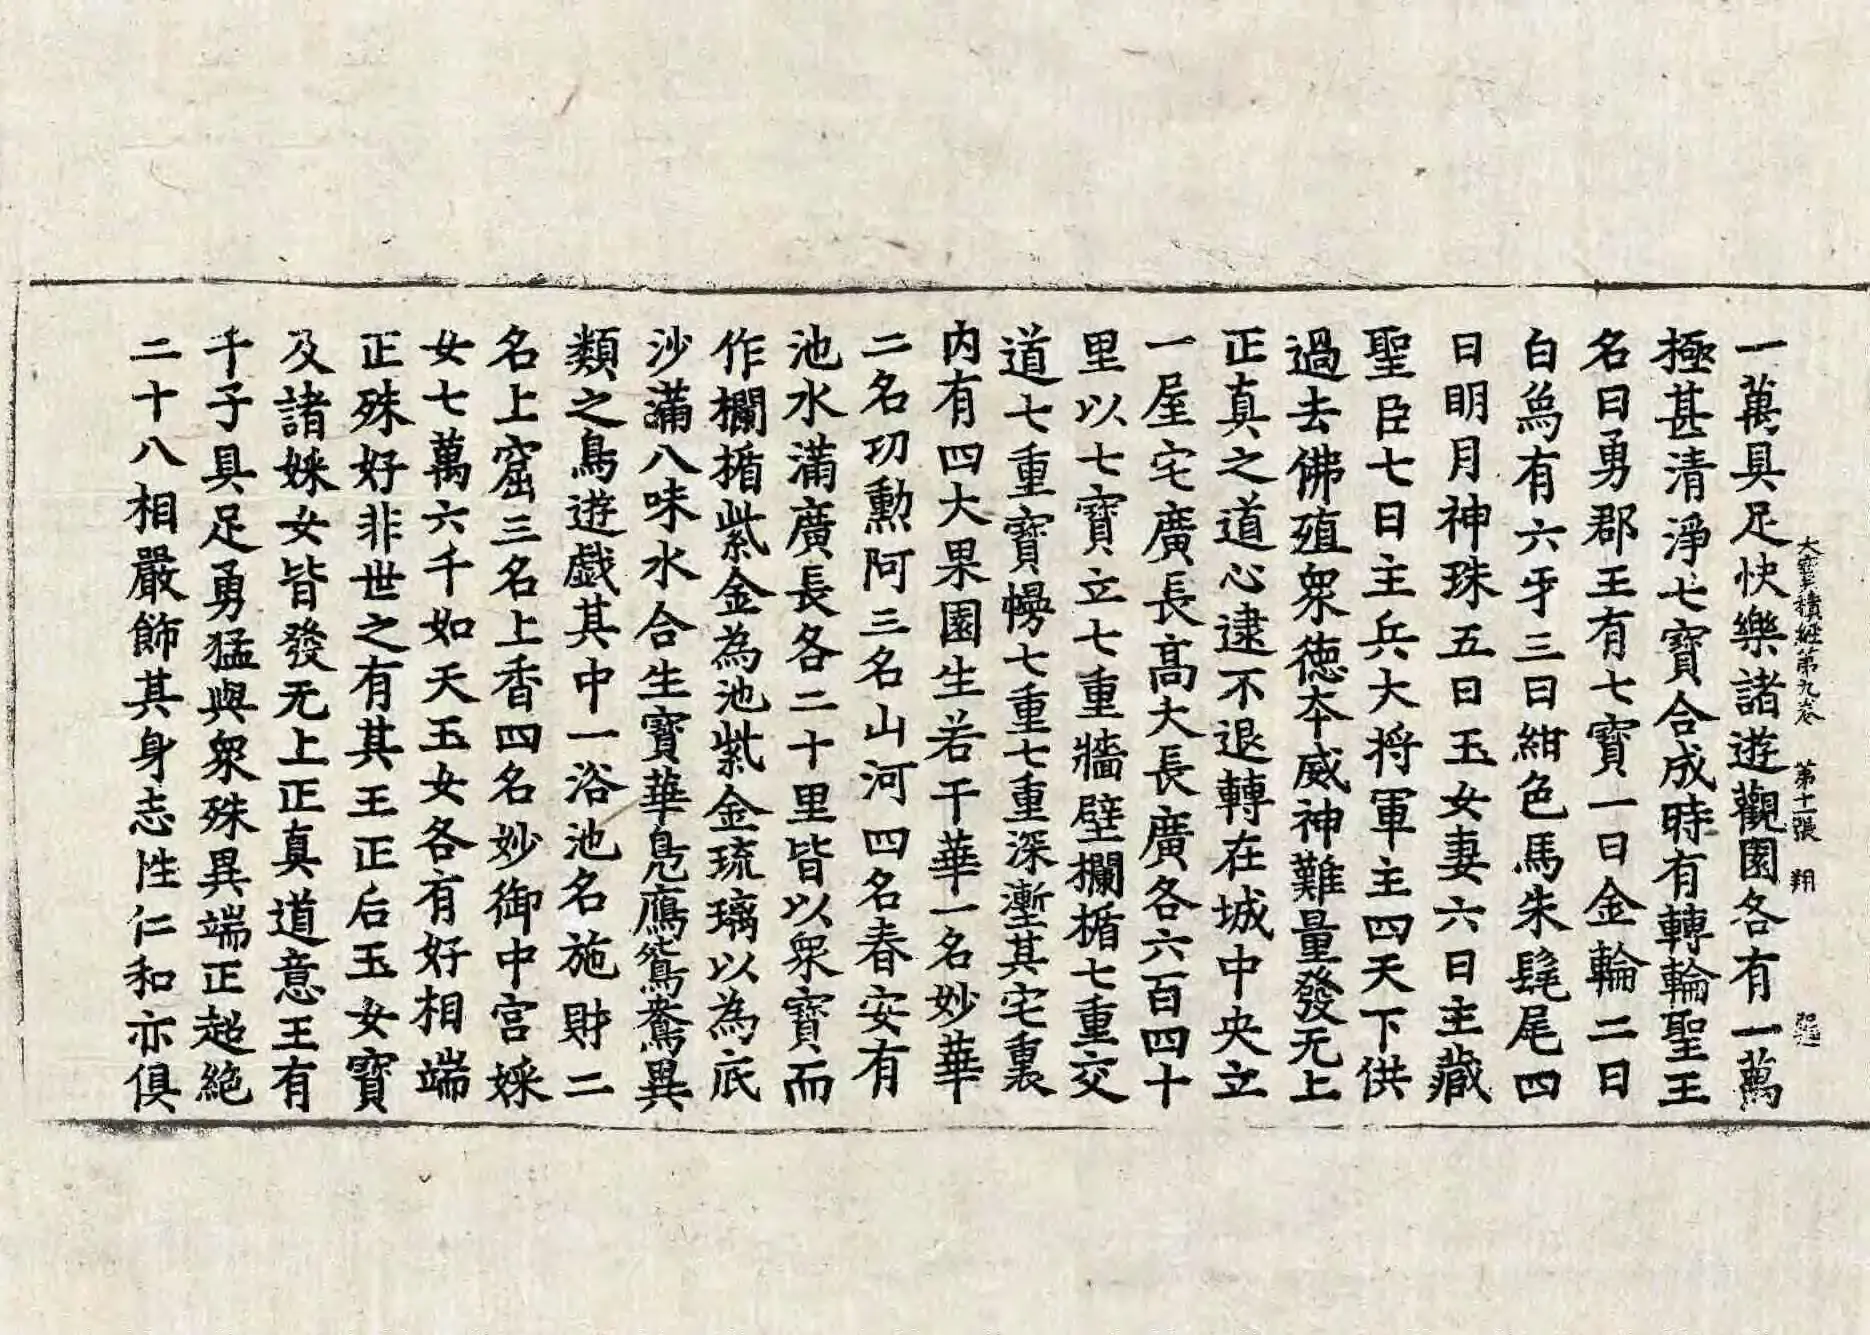 大寶積經第九卷 第十張 翔
一萬具足快樂諸遊觀園各有一萬
極甚清淨七寶合成時有轉輪聖王
名曰勇郡王有七寶一曰金輪二曰
白為有六牙三曰紺色馬朱髦尾四
曰明月神珠五曰玉女妻六曰主藏
聖臣七曰主兵大将軍主四天下供
過去佛殖衆德本威神難量發无上
正真之道心逮不退轉在城中央立
一屋宅廣長高大長廣各六百四十
里以七寶立七重牆壁欄楯七重交
道七重寶幔七重七重深壍其宅裏
内有四大果園生若干華一名妙華
二名功勳阿三名山河四名春安有
池水滿廣長各二十里皆以衆寶而
作欄楯紫金為池紫金琉璃以為底
沙滿八味水合生寶華鳧鴈鴛鴦異
類之鳥遊戲其中一浴池名施財二
名上窟三名上香四名妙御中宮婇
女七萬六千如天玉女各有好相端
正殊好非世之有其王正后玉女寶
及諸婇女皆發无上正真道意王有
千子具足勇猛與衆殊異端正超絶
二十八相嚴飾其身志性仁和亦俱